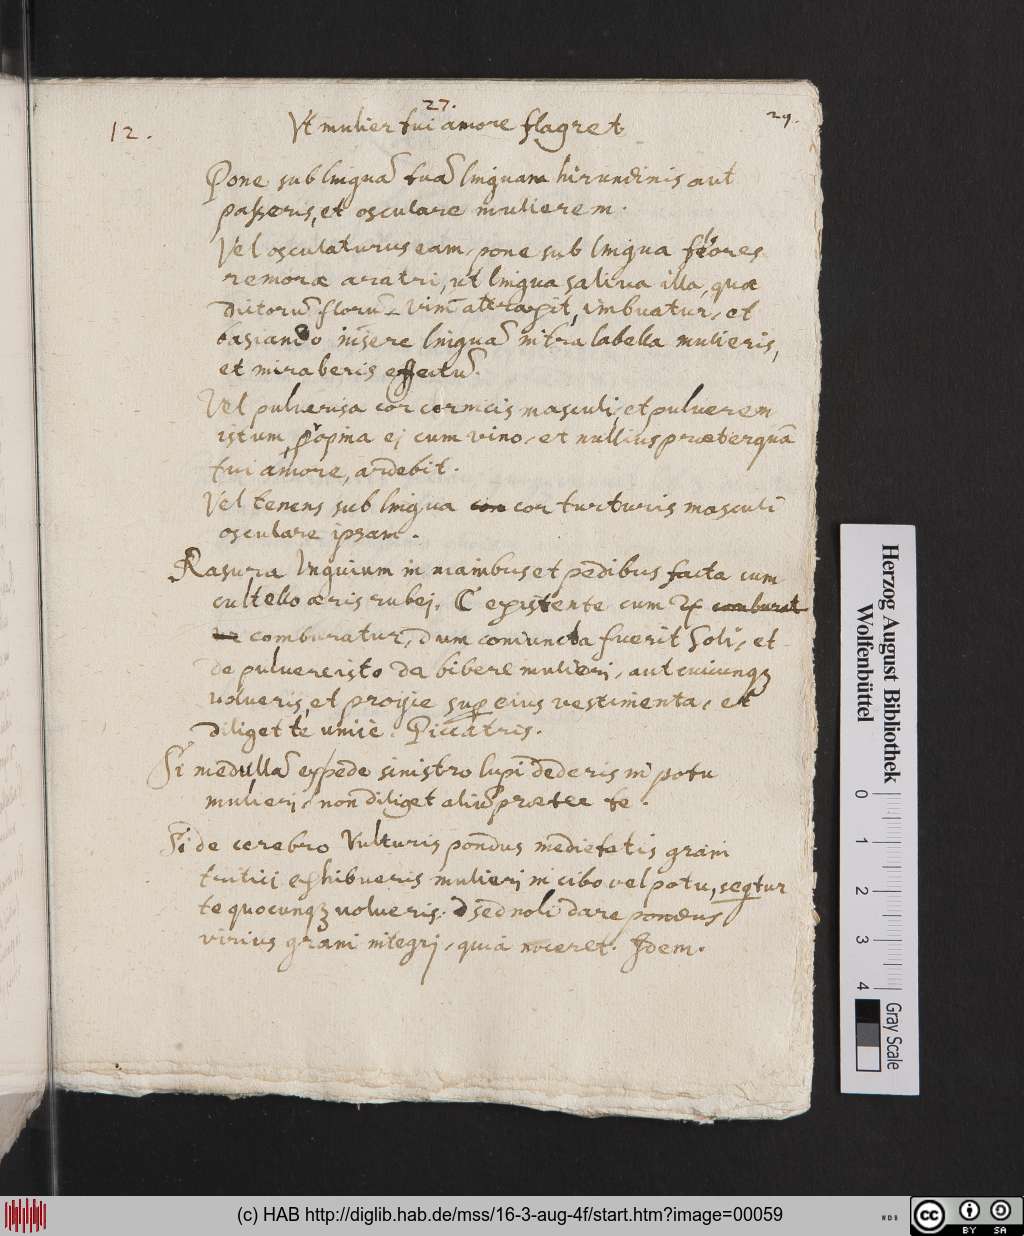 27.
12.
29.
Vt mulier tui amore flagret.
Pone sub linguā tuā linguam hirundinis aut
passeris, et osculare mulierem.
Vel osculaturus eam, pone sub lingua flores
remoræ aratri, ut lingua saliva illa, quæ
dictorū florū vim attraxit, imbuatur, et
basiando insere linguā intra labella mulieris,
et miraberis effectū.
Vel pulverisa cor cornicis masculi, et pulverem
istum, propina ej cum vino, et nullius præterquā
tui amore, ardebit.
Vel tenens sub lingua cor turturis masculi
osculare ipsam.
Rasura Unguium in manibus et pedibus facta cum
cultello æris rubej, ☾ existente cum ♃ comburat
comburatur, dum coniuncta fuerit Soli, et
de pulvere isto da bibere mulieri, aut cuicunqꝫ
volueris, et proijce super eius vestimenta, et
diliget te Piccatris.
Si medullā ex pede sinistro lupi dederis in potu
mulierj, non diliget aliū præter te.
Si de cerebro Vulturis pondus medietatis grani
tritici exhibueris mulierj in cibo vel potu, seqtur
te quocunqꝫ volueris. sed noli dare pondus
grani integrj, quia noceret. Idem.
Herzog August Bibliothek
Wolfenbüttel
0 1 2 3 4
Gray Scale
(c) HAB http://diglib.hab.de/mss/16-3-aug-4f/start.htm?image=00059
WDB
cc
BY SA